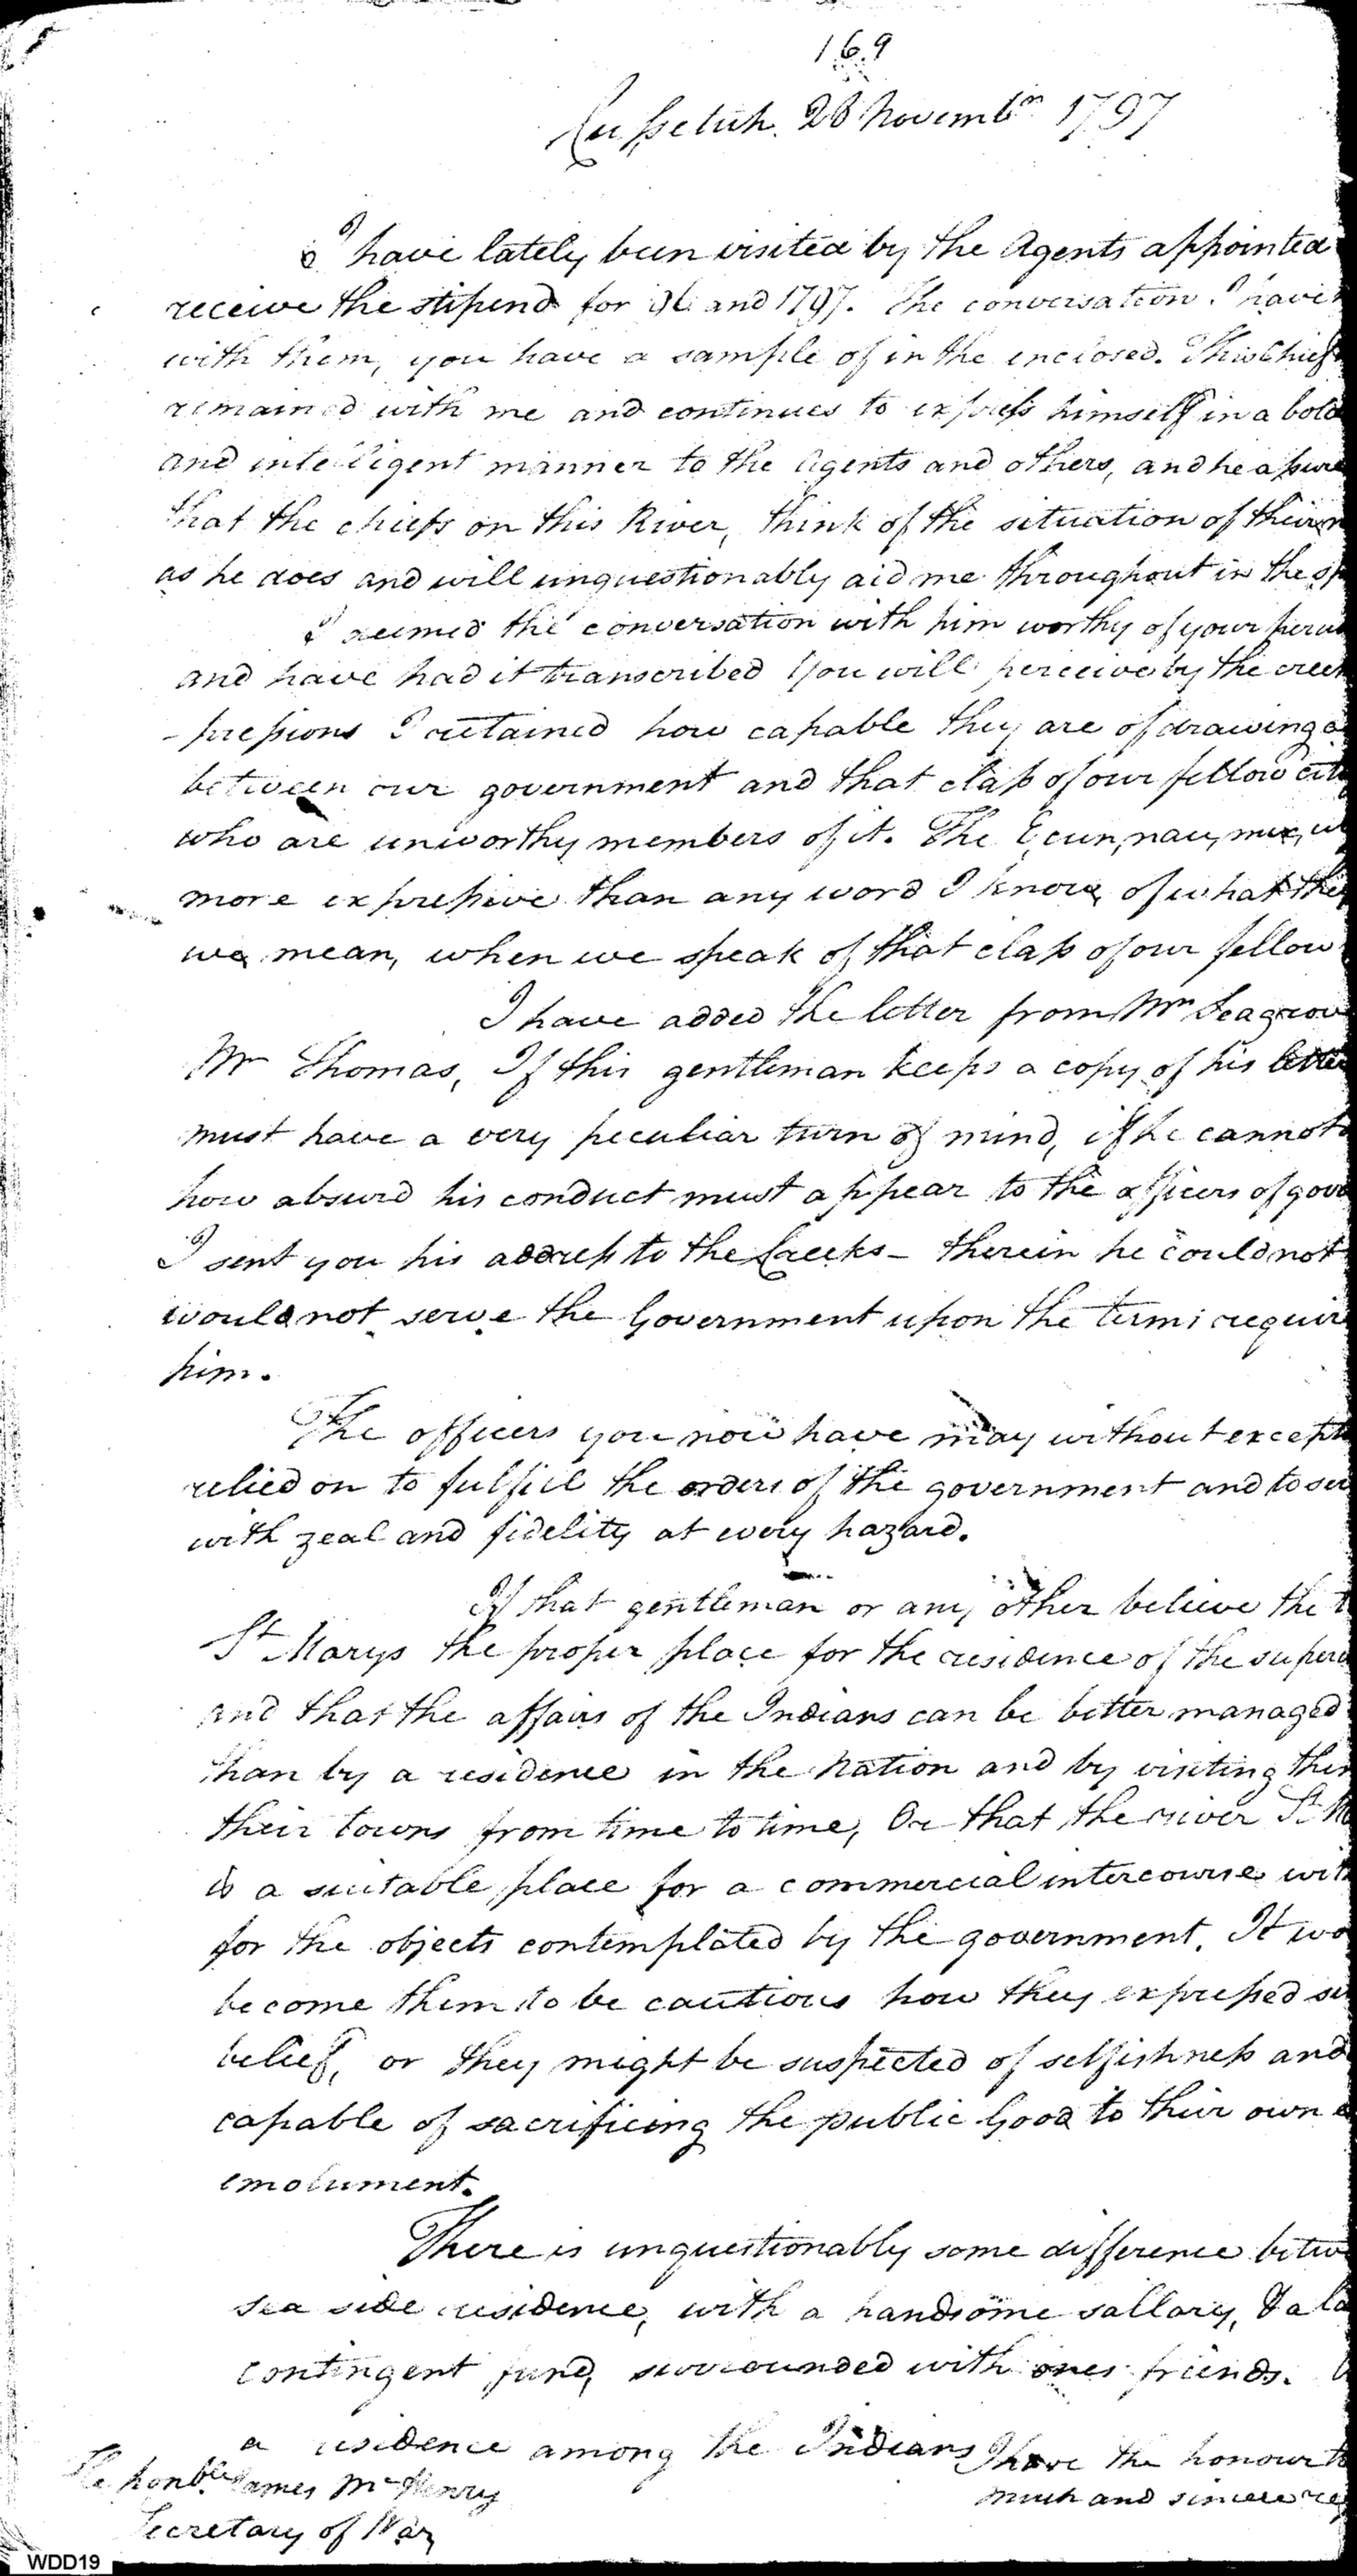 169
Cussetuh. 28 Novembr 1797
I have lately been visited by the Agents appointed
receive the stipend for 96 and 1797. The conversation I have
with them, you have a sample of in the inclosed. This Chief
remained with me and continues to express himself in a bold
and intelligent manner to the Agents and others, and he assure
that the chiefs on this River, think of the situation of their
as he does and will unquestionably aid me throughout in the
I deemed the conversation with him worthy of your perus
and have had it transcribed You will perceive by the creek
-pressions I retained how capable they are of drawing a
between our government and that class of our fellow cit
who are unworthy members of it. The Ecun,nau,nux,ul
more expressive than any word I know, of what the
we mean, when we speak of that class of our fellow
I have added the letter from Mr Seagrov
Mr Thomas, If this gentleman keeps a copy of his letter
must have a very peculiar turn of mind, if he cannot
how absurd his conduct must appear to the officers of gove
I sent you his address to the Creeks - therein he could not
would not serve the Government upon the terms requir
him.
The officers you now have may without except
relied on to fulfill the orders of the government and to ser
with zeal and fidelity at every hazard.
If that gentleman or any other believe the
St Marys the proper place for the residence of the super
and that the affairs of the Indians can be better managed
than by a residence in the Nation and by visiting them
their towns from time to time, Or that the river St M
is a suitable place for a commercial intercourse with
for the objects contemplated by the government. It wo
become them to be cautious how they expressed su
belief, or they might be suspected of selfishness and
capable of sacrificing the public Good to their own
emolument.
There is unquestionably some difference betwe
sea side residence, with a handsome sallary, & a la
contingent fund, surrounded with ones friends.
a residence among the Indians I have the honour to
The honble. James McHenry
much and sincere re
Secretary of War
WDD19